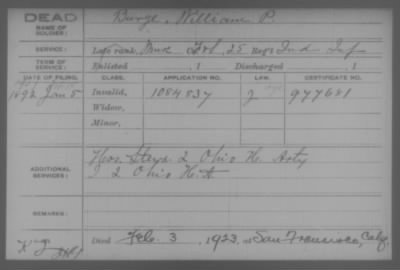 DEAD
NAME OF SOLDIER:
Bunge, William P.
SERVICE:
Late rank, Mus F&S, 25 Reg't Ind Inf
TERM OF SERVICE:
Enlisted , 1 Discharged , 1
DATE OF FILING. CLASS. APPLICATION NO. LAW. CERTIFICATE NO.
1892 Jan 5 Invalid, 1084837 977681
Widow,
Minor,
ADDITIONAL SERVICES:
Hos. Stewd. 2 Ohio H. Arty
2 Ohio H.A
REMARKS:
Died Feb. 3, 1923, at San Francisco, Calif